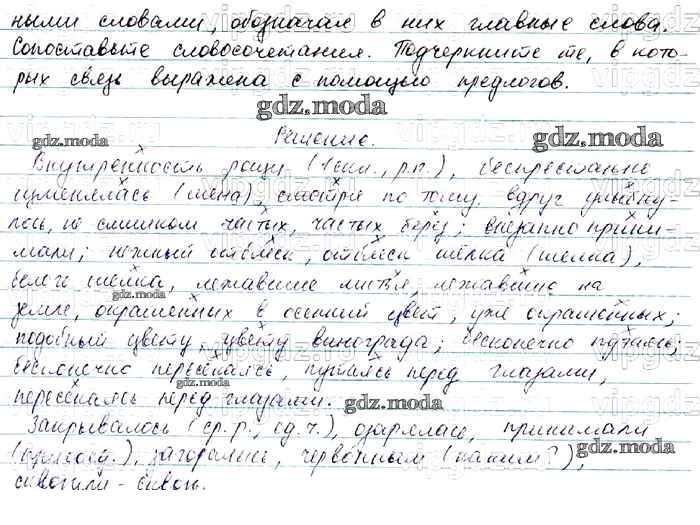 ными словами, обозначая в них главные слова.
Сопоставьте словосочетания. Подчеркните те, в кото-
рых связь выражена с помощью предлогов.
gdz.moda
gdz.moda
gdz.moda
Решение.
Внутренность рощи (1 скл., р.п.), беспрестанно
изменялась (мена), смотря по тому, вдруг улыбну-
лось, не слишком частых, частых берёз; внезапно прини-
мали; нежный отблеск, отблеск шёлка (шелка),
белого шёлка, лежавшие листья, лежавшие на
gdz.moda
земле, окрашенных в осенний цвет, уже окрашенных;
подобный цвету, цвету винограда; бесконечно путаясь;
бесконечно пересекаясь, путаясь перед глазами,
gdz.moda
пересекаясь перед глазами.
gdz.moda
Закрывалось (ср.р., ед.ч.), озарялась, принимали
gdz.moda
загорелись, червонным (каким?),
сквозили - сквозь.